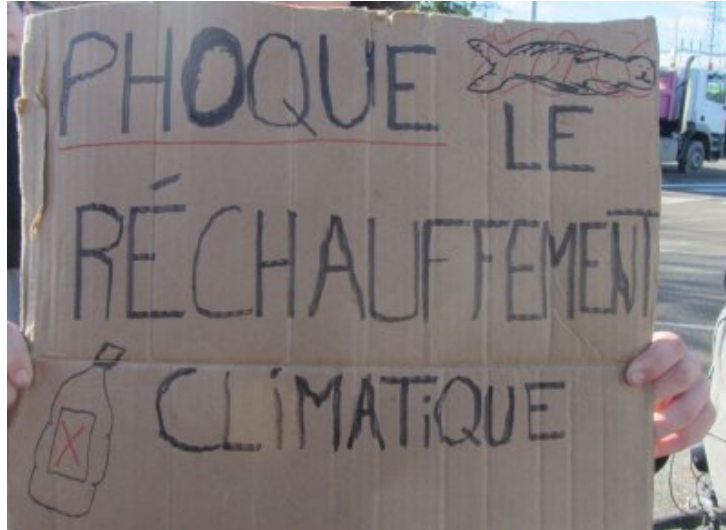 PHOQUE
LE
RÉCHAUFFEMENT
CLiMATiQUE
X